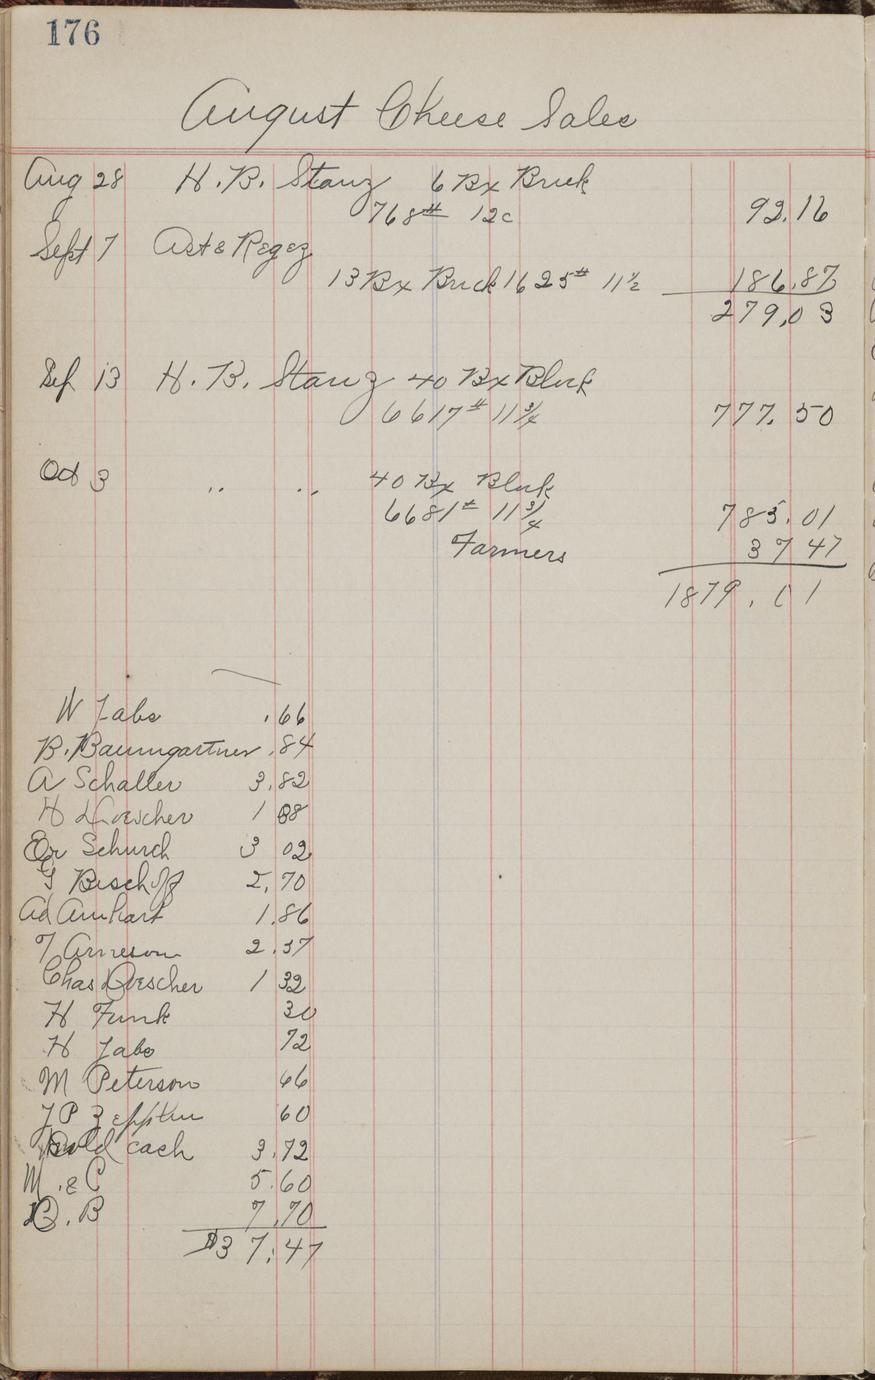 176
August Cheese Sales
Aug 28 H. B. Stanz 6 Bx Brick
768# 12c 92.16
Sept 7 Ast & Regez
13 Bx Brick 1625# 11½ 186.87
279.03
Sep 13 H. B. Stanz 40 Bx Block
6617# 11¾ 777.50
Oct 3 " " 40 Bx Block
6681# 11¾ 785.01
Farmers 37 47
1879.01
W Jabs .66
B. Baumgartner .84
A Schaller 3.82
H Doescher 1 88
Er Schurch 3 02
G Bischoff 2.70
Ad Amhart 1.86
T Arneson 2.37
Chas Doescher 1 32
H Funk 30
H Jabs 72
M Peterson 66
J P Zepplin 60
Sold cash 3.72
M. & C 5.60
B. B 7.70
$37.47